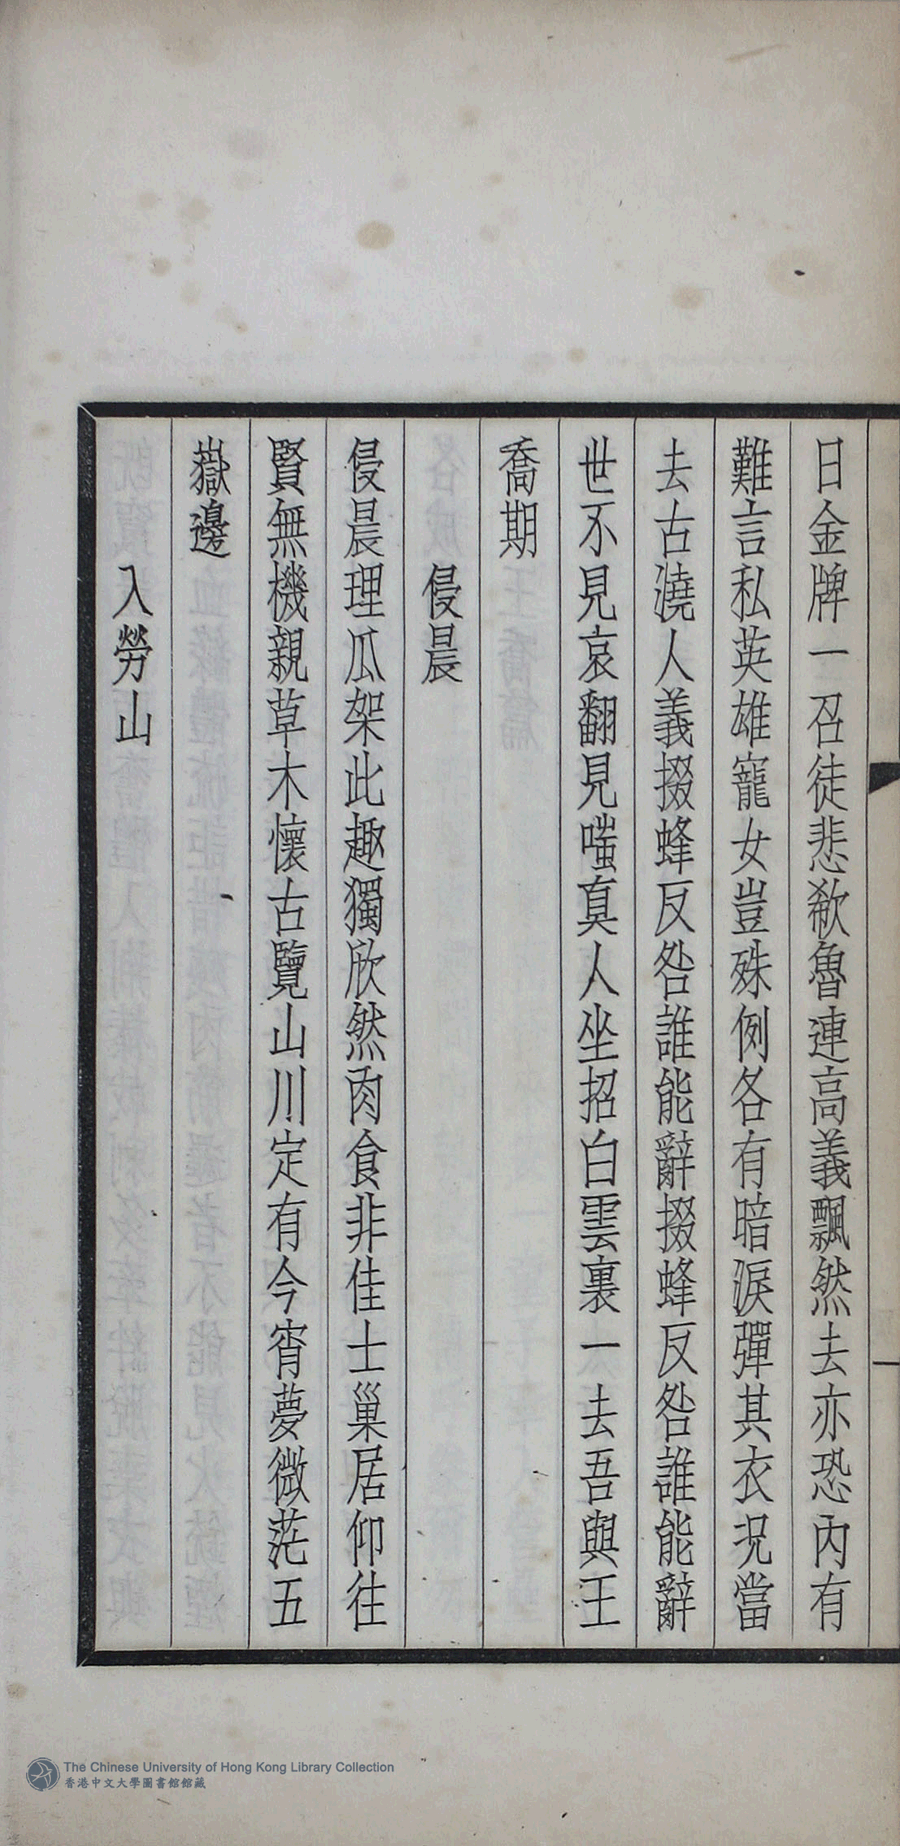 日金牌一召徒悲欷魯連高義飄然去亦恐內有
難言私英雄寵女豈殊例各有暗淚彈其衣况當
去古澆人義掇蜂反咎誰能辭掇蜂反咎誰能辭
世不見哀翻見嗤真人坐招白雲裏一去吾與王
喬期
侵晨
侵晨理瓜架此趣獨欣然肉食非佳士巢居仰往
賢無機親草木懷古覽山川定有今宵夢微茫五
嶽邊
入勞山
The Chinese University of Hong Kong Library Collection
香港中文大學圖書館館藏